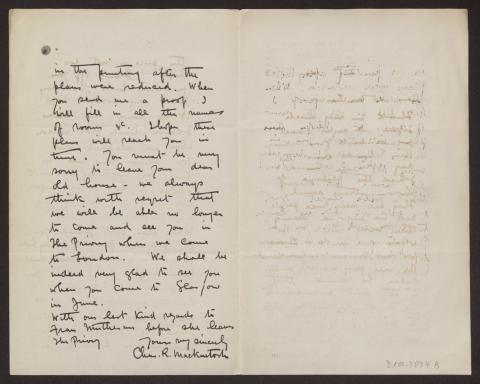 in the printing after the
plans were reduced. When
you send me a proof I
will fill in all the names
of rooms &c. I hope these
plans will reach you in
time. You must be very
sorry to leave your dear
old house - we always
think with regret that
we will be able no longer
to come and see you in
The Priory when we come
to London. We shall be
indeed very glad to see you
when you come to Glasgow
in June.
With our best kind regards to
Frau Muthesius before she leaves
The Priory Yours very sincerely
Chas. R. Mackintosh